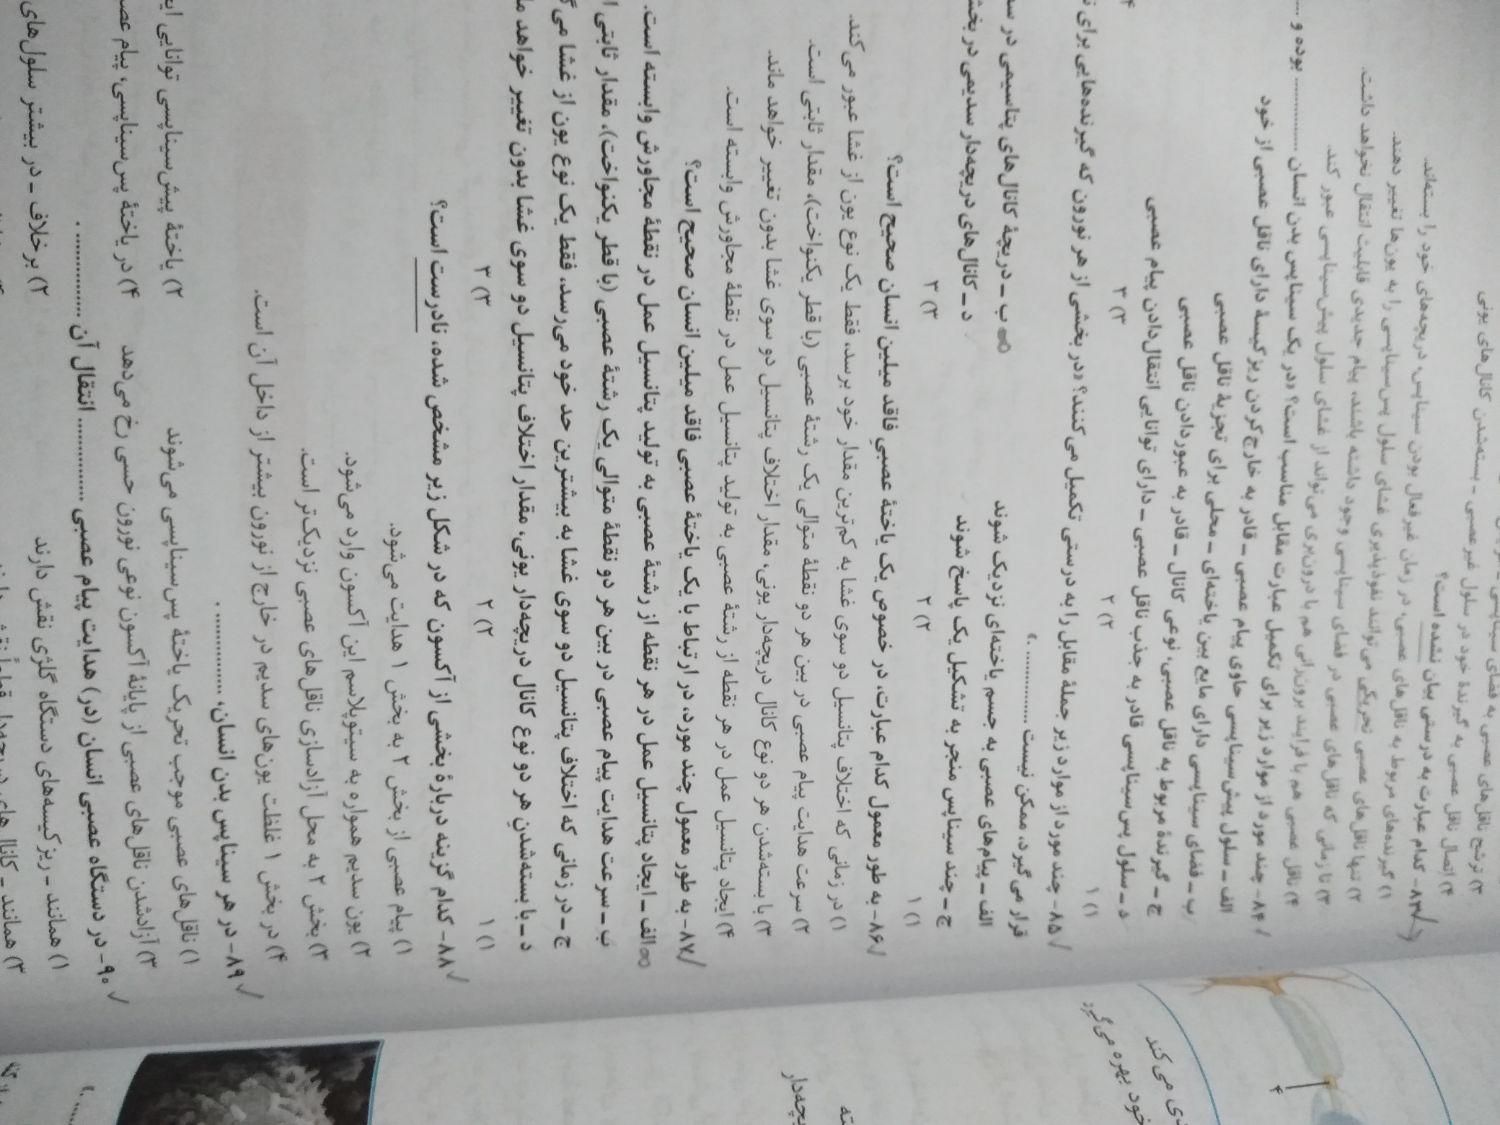 ۳) ترشح ناقل‌های عصبی به فضای سیناپسی
۴) اتصال ناقل عصبی به گیرندهٔ خود در سلول غیرعصبی ـ بسته‌شدن کانال‌های یونی
۸۳- کدام عبارت به درستی بیان نشده است؟
۱) گیرنده‌های مربوط به ناقل‌های عصبی، در زمان غیرفعال بودن سیناپس، دریچه‌های خود را بسته‌اند.
۲) تنها ناقل‌های عصبی تحریکی می‌توانند نفوذپذیری غشای سلول پس‌سیناپسی را به یون‌ها تغییر دهند.
۳) تا زمانی که ناقل‌های عصبی در فضای سیناپسی وجود داشته باشند، پیام جدیدی قابلیت انتقال نخواهد داشت.
۴) ناقل عصبی هم با فرایند برون‌رانی هم با درون‌بری می‌تواند از غشای سلول پیش‌سیناپسی عبور کند.
۸۴- چند مورد از موارد زیر برای تکمیل عبارت مقابل مناسب است؟ «در یک سیناپس بدن انسان ............ بوده و ....
الف ـ سلول پیش‌سیناپسی حاوی پیام عصبی ـ قادر به خارج‌کردن ریزکیسهٔ دارای ناقل عصبی از خود
ب ـ فضای سیناپسی دارای مایع بین یاخته‌ای ـ محلی برای تجزیهٔ ناقل عصبی
ج ـ گیرندهٔ مربوط به ناقل عصبی، نوعی کانال ـ قادر به عبوردادن ناقل عصبی
د ـ سلول پس‌سیناپسی قادر به جذب ناقل عصبی ـ دارای توانایی انتقال‌دادن پیام عصبی
۱) ۱ ۲) ۲ ۳) ۳ ۴
۸۵- چند مورد از موارد زیر جملهٔ مقابل را به درستی تکمیل می‌کنند؟ «در بخشی از هر نورون که گیرنده‌هایی برای
قرار می‌گیرد، ممکن نیست ............ .»
الف ـ پیام‌های عصبی به جسم یاخته‌ای نزدیک شوند ب ـ دریچهٔ کانال‌های پتاسیمی در
ج ـ چند سیناپس منجر به تشکیل یک پاسخ شوند د ـ کانال‌های دریچه‌دار سدیمی در
۱) ۱ ۲) ۲ ۳) ۳
۸۶- به طور معمول کدام عبارت، در خصوص یک یاختهٔ عصبی فاقد میلین انسان صحیح است؟
۱) در زمانی که اختلاف پتانسیل دو سوی غشا به کم‌ترین مقدار خود برسد، فقط یک نوع یون از غشا عبور می‌کند.
۲) سرعت هدایت پیام عصبی در بین هر دو نقطهٔ متوالی یک رشتهٔ عصبی (با قطر یکنواخت)، مقدار ثابتی است.
۳) با بسته‌شدن هر دو نوع کانال دریچه‌دار یونی، مقدار اختلاف پتانسیل دو سوی غشا بدون تغییر خواهد ماند.
۴) ایجاد پتانسیل عمل در هر نقطه از رشتهٔ عصبی به تولید پتانسیل عمل در نقطهٔ مجاورش وابسته است.
۸۷- به طور معمول چند مورد، در ارتباط با یک یاختهٔ عصبی فاقد میلین انسان صحیح است؟
الف ـ ایجاد پتانسیل عمل در هر نقطه از رشتهٔ عصبی به تولید پتانسیل عمل در نقطهٔ مجاورش وابسته است.
ب ـ سرعت هدایت پیام عصبی در بین هر دو نقطهٔ متوالی یک رشتهٔ عصبی (با قطر یکنواخت)، مقدار ثابتی
ج ـ در زمانی که اختلاف پتانسیل دو سوی غشا به بیشترین حد خود می‌رسد، فقط یک نوع یون از غشا
د ـ با بسته‌شدنِ هر دو نوع کانال دریچه‌دار یونی، مقدار اختلاف پتانسیل دو سوی غشا بدون تغییر خواهد
۱) ۱ ۲) ۲ ۳) ۳
۸۸- کدام گزینه دربارهٔ بخشی از آکسون که در شکل زیر مشخص شده، نادرست است؟
۱) پیام عصبی از بخش ۲ به بخش ۱ هدایت می‌شود.
۲) یون سدیم همواره به سیتوپلاسم این آکسون وارد می‌شود.
۳) بخش ۲ به محل آزادسازی ناقل‌های عصبی نزدیک‌تر است.
۴) در بخش ۱ غلظت یون‌های سدیم در خارج از نورون بیشتر از داخل آن است.
۸۹- در هر سیناپس بدن انسان، ............ .
۱) ناقل‌های عصبی موجب تحریک یاختهٔ پس‌سیناپسی می‌شوند ۲) یاختهٔ پیش‌سیناپسی توانایی
۳) آزادشدن ناقل‌های عصبی از پایانهٔ آکسون نوعی نورون حسی رخ می‌دهد ۴) در یاختهٔ پس‌سیناپسی، پیام
۹۰- در دستگاه عصبی انسان (در) هدایت پیام عصبی ............ انتقال آن ............ .
۱) همانند ـ ریزکیسه‌های دستگاه گلژی نقش دارند ۲) برخلاف ـ در بیشتر سلول‌های
۳) همانند ـ کانال‌های دریچه‌دار قطعاً نقش دارند
۴
ی می‌کند
خود بهره می‌گیرد